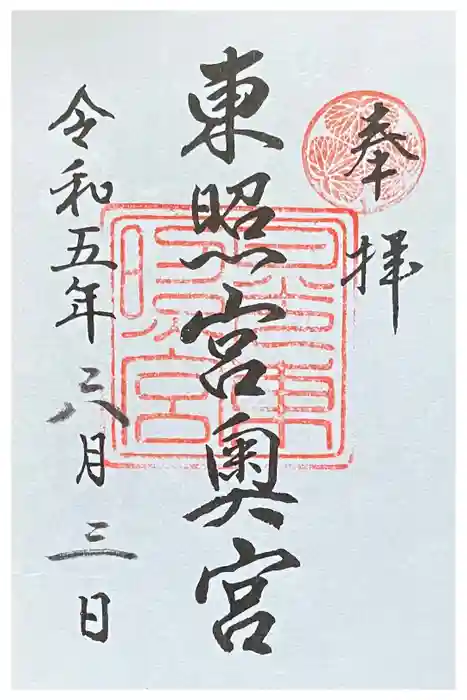 奉拝
東照宮奥宮
日光東
照宮
令和五年六月三日